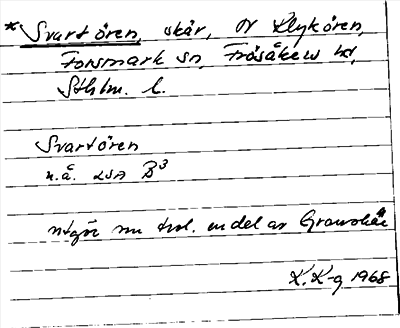 * Svartören, skär, N Klykören,
Forsmark sn, Frösåkers hd,
Sthlm. l.
Svartören
n.å. LSA B3
utgör nu trol. en del av Granskär
K. K-g 1968